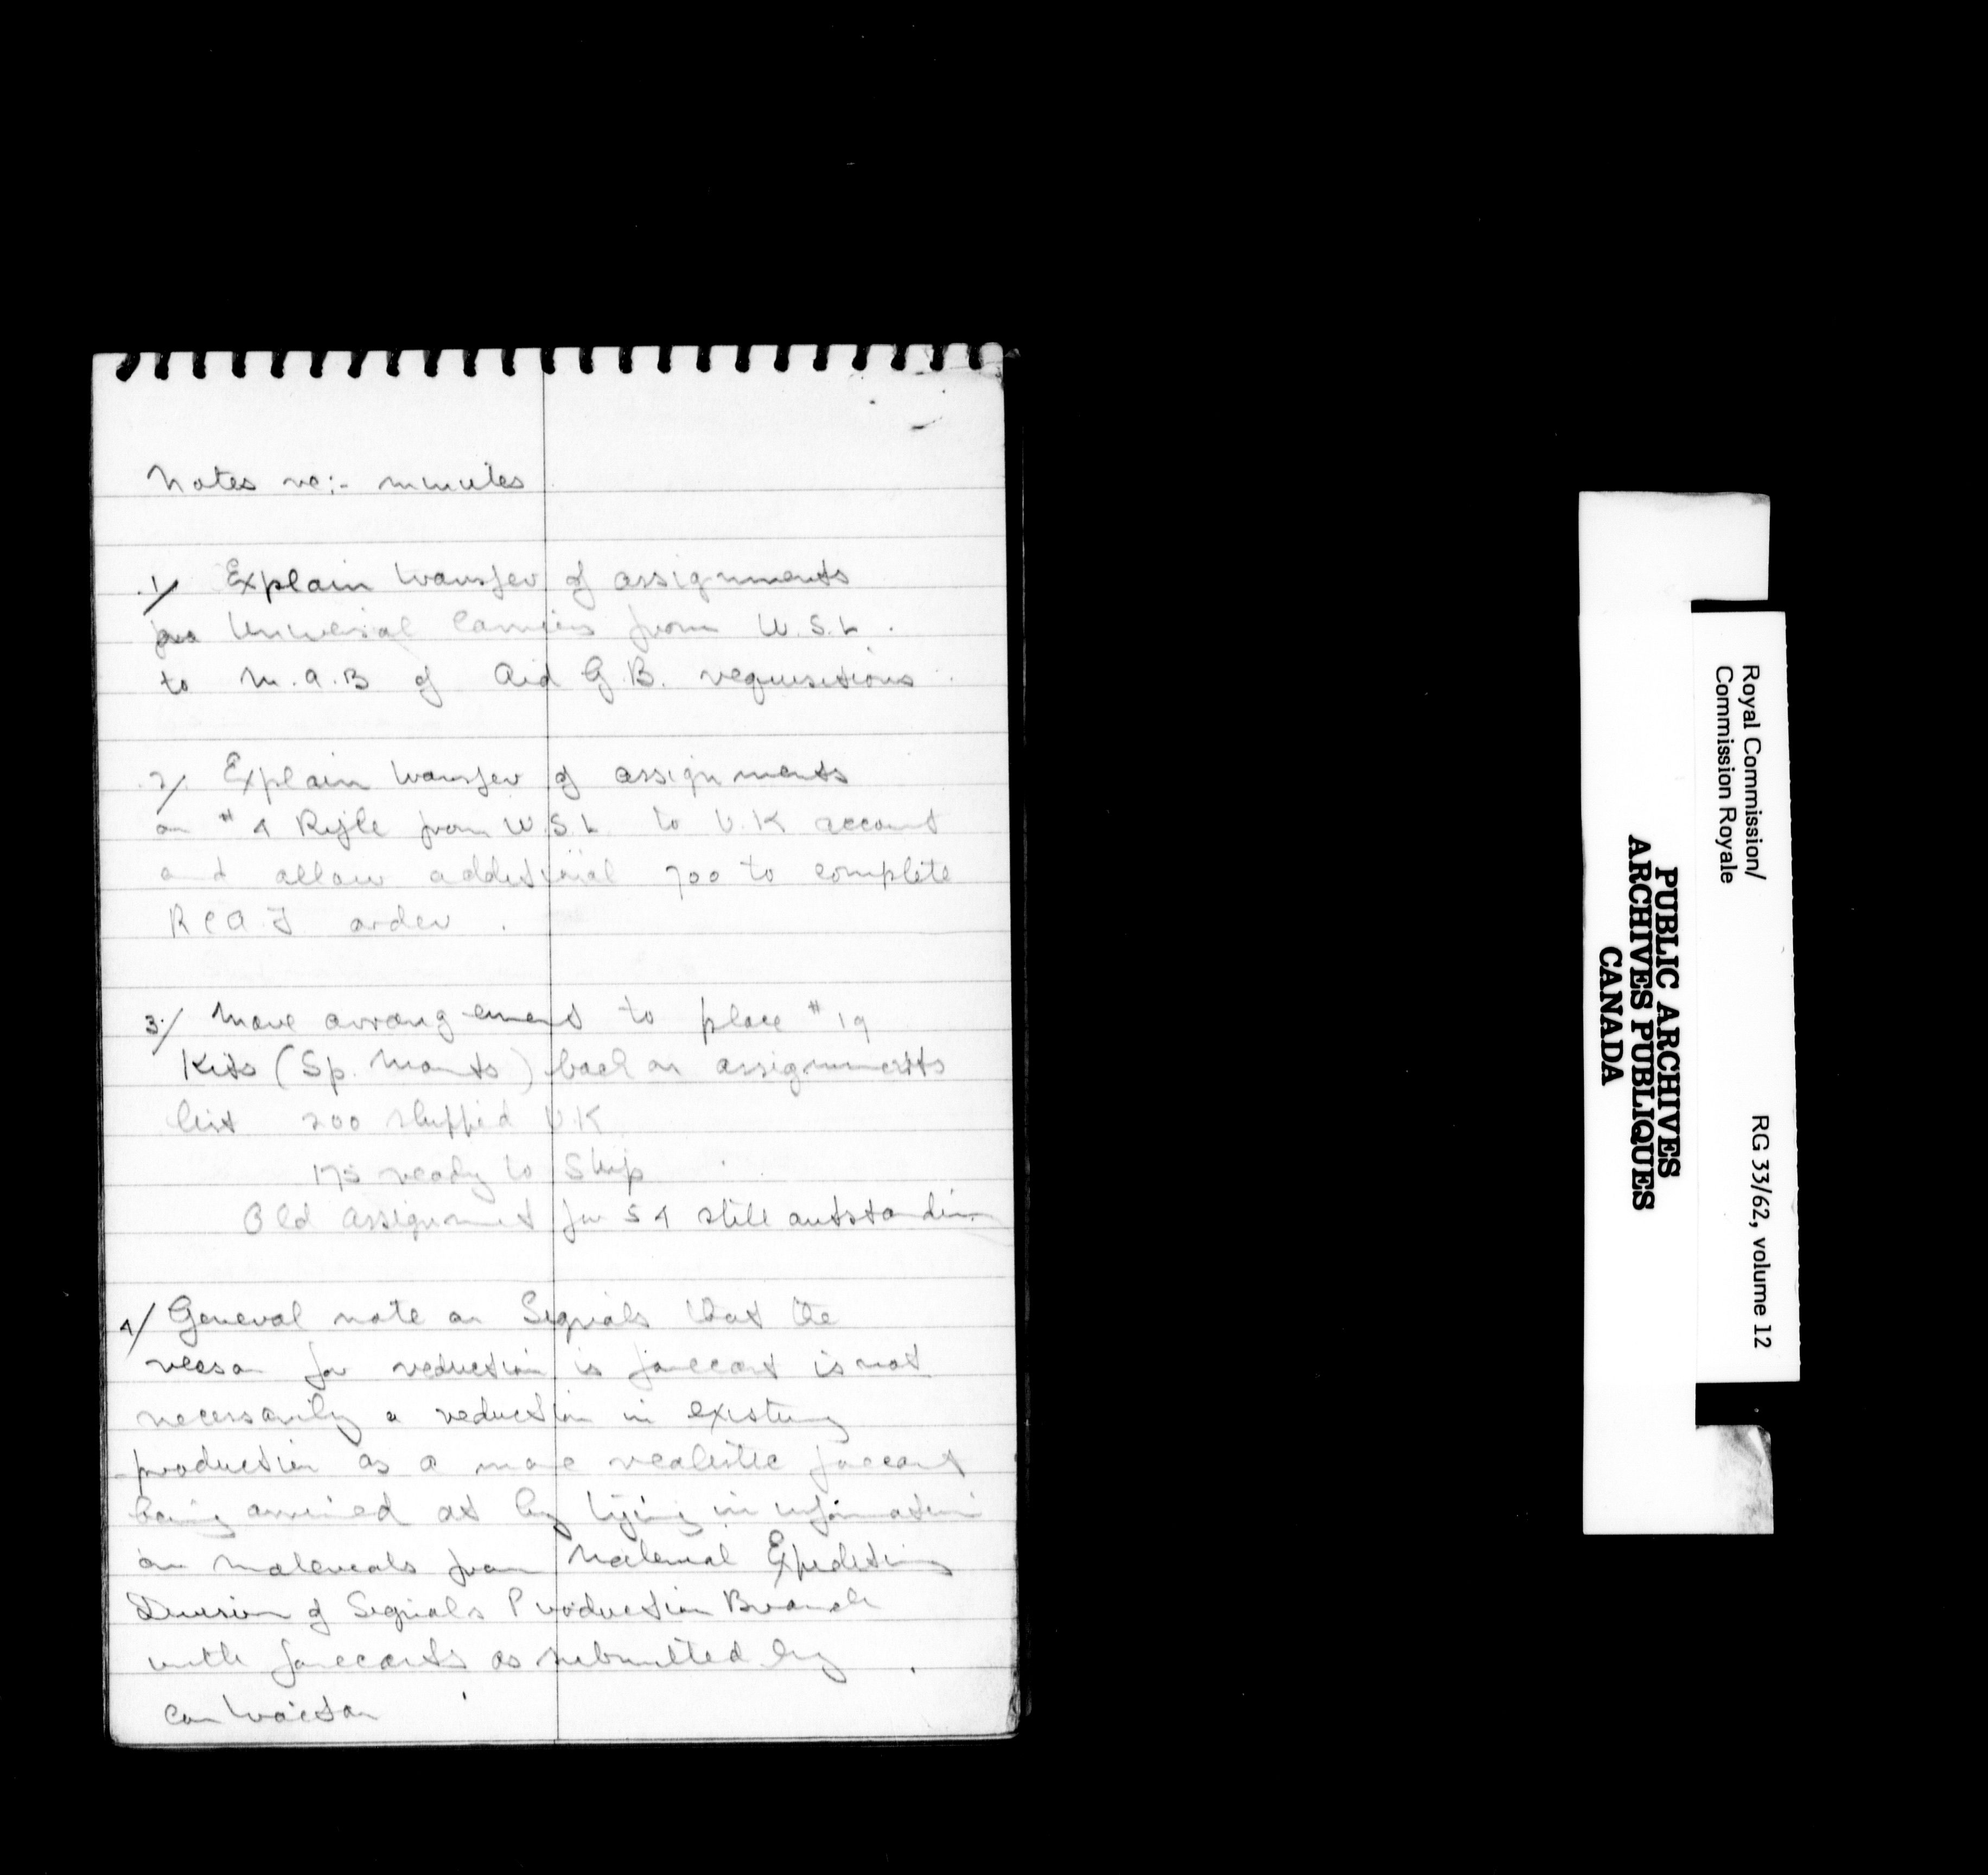 Notes re:- minutes
1/ Explain transfer of assignments
for Universal Carriers from W.S.L.
to M.A.B of Aid G.B. requisitions.
2/ Explain transfer of assignments
on #4 Rifle from W.S.L to U.K account
and allow additional 700 to complete
RCAF order.
3/ Make arrangement to place #19
Kits (Sp. Mants) back on assignments
list 200 shipped U.K
175 ready to Ship
Old assignment for 54 still outstanding
4/ General note on Signals that the
reason for reduction is forecast is not
necessarily a reduction in existing
production as a more realistic forecast
being arrived at by tying in information
on materials from Material Expediting
Division of Signals Production Branch
with forecasts as submitted by
contractor
Royal Commission/
Commission Royale
RG 33/62, volume 12
PUBLIC ARCHIVES
ARCHIVES PUBLIQUES
CANADA